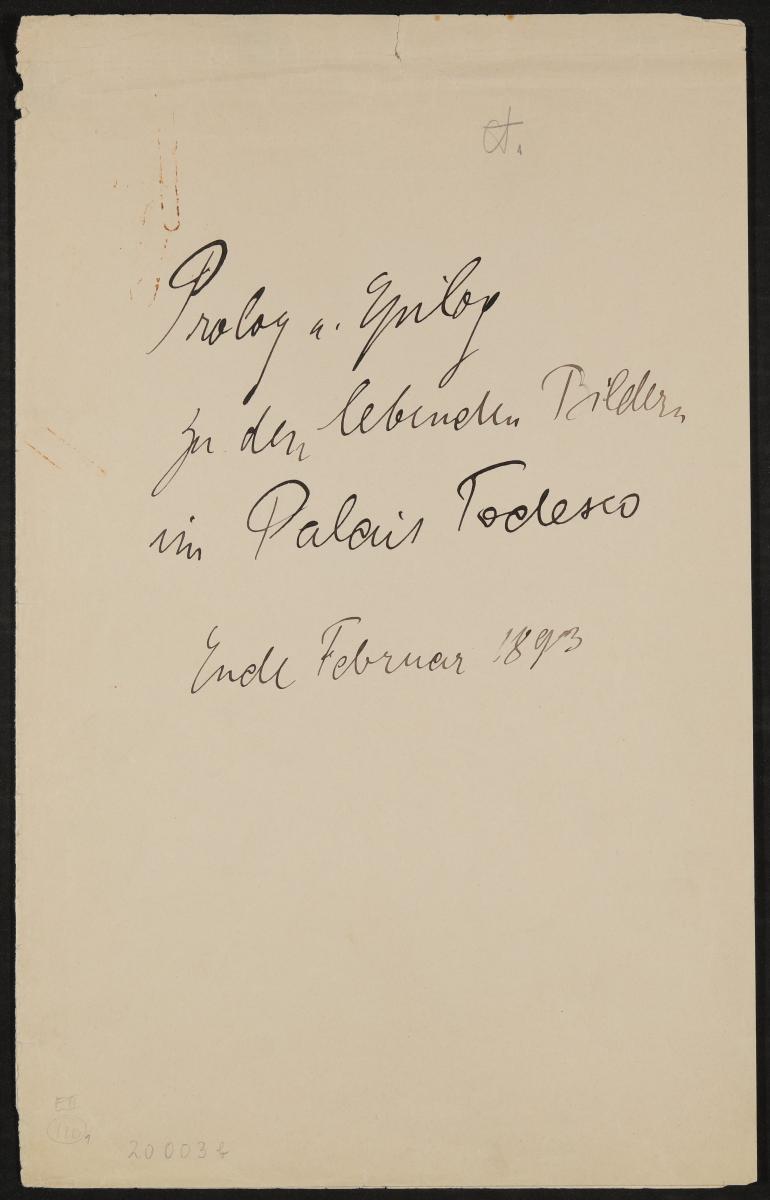 A.
Prolog u. Epilog
zu den lebenden Bildern
im Palais Todesco
Ende Februar 1893
E III
20003b